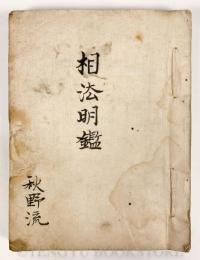 相法明鑑
秋野流
TENGYU BOOKSTORE